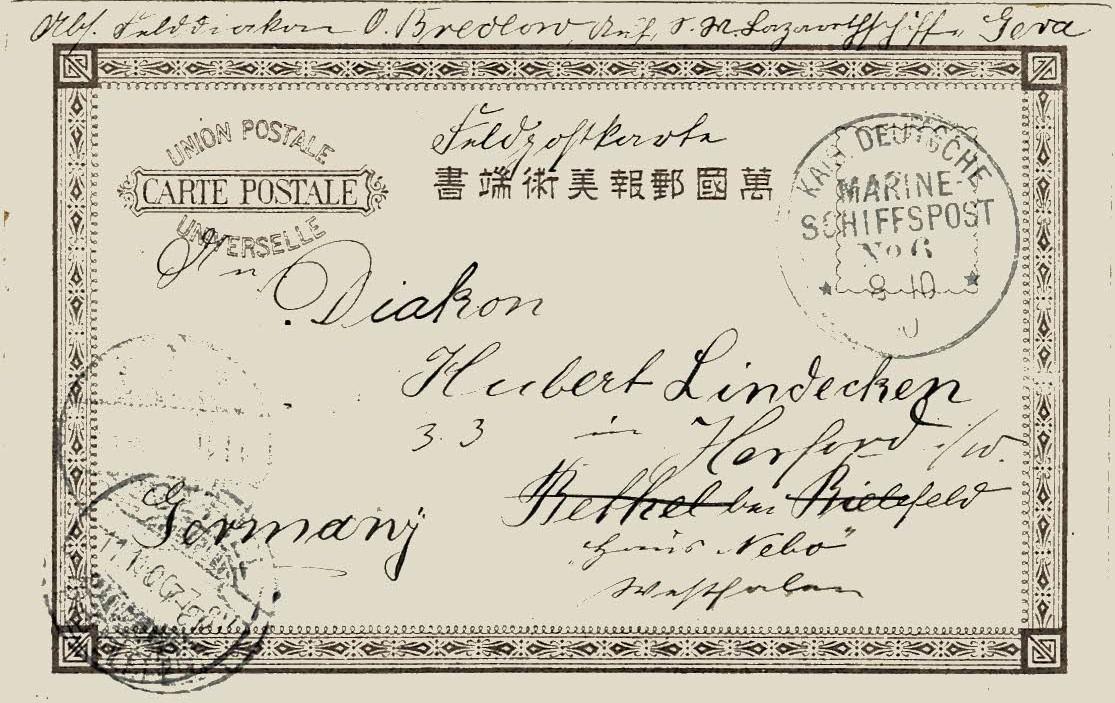 Abs. Felddiakon O. Bredlow, Auf S. M. Lazarethschiff „Gera
Feldpostkarte
UNION POSTALE
CARTE POSTALE
UNIVERSELLE
書端術美報郵國萬
KAIS. DEUTSCHE
MARINE-
SCHIFFSPOST
No 6
8 10
An
Diakon
Hubert Lindecken
3. 3 in Herford i/w.
Bethel bei Bielefeld
Germany
"Haus Nebo"
Westfalen